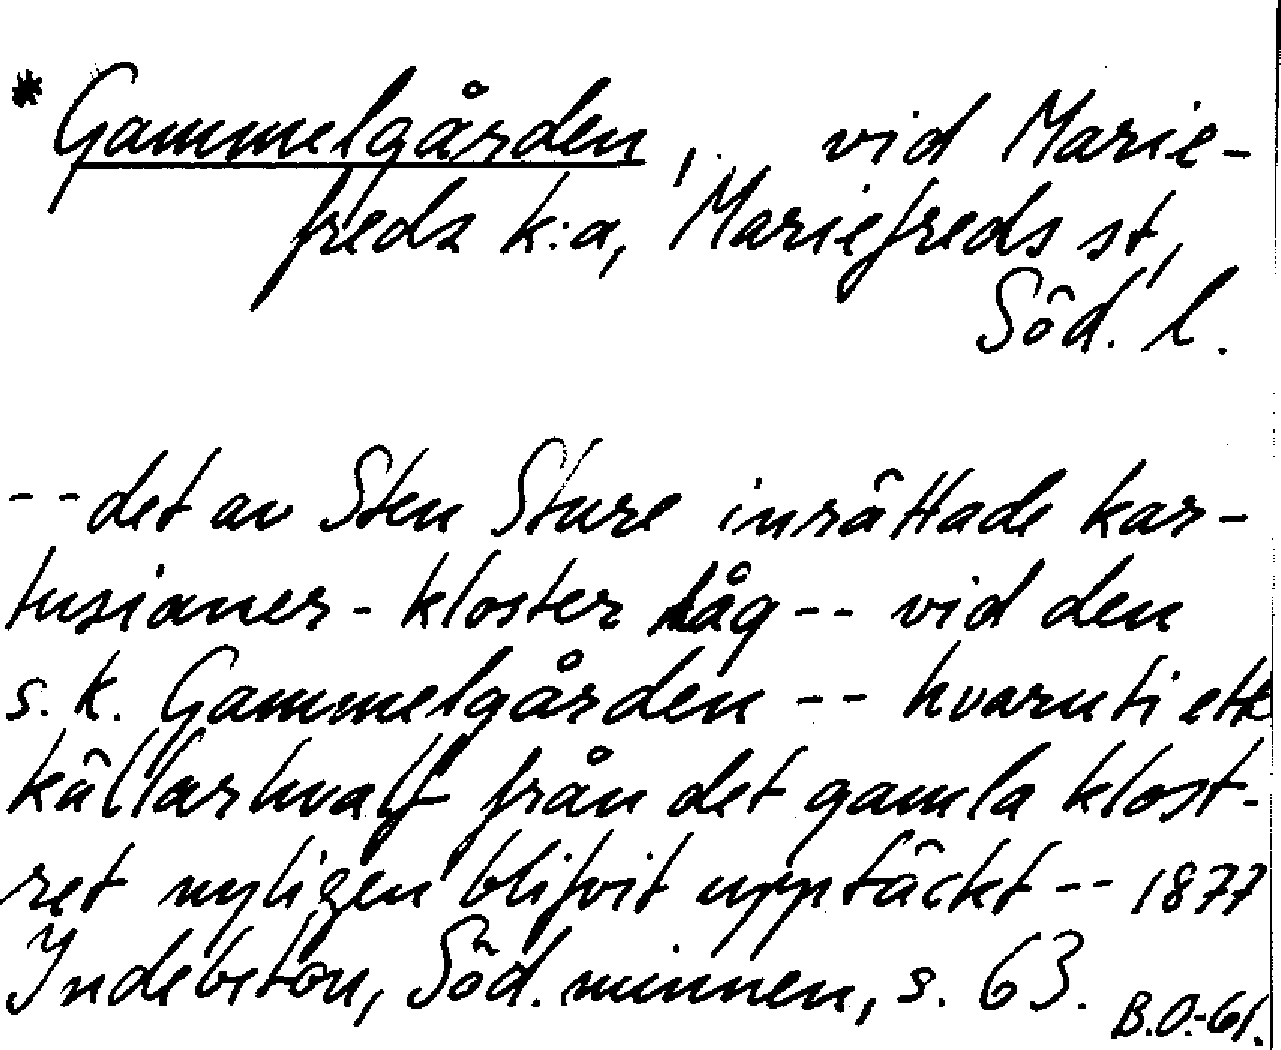 * Gammelgården, vid Marie-
freds k:a, Mariefreds st,
Söd. l.
--det av Sten Sture inrättade kar-
tusianer-kloster låg -- vid den
s.k. Gammelgården -- hvaruti ett
källarhvalf från det gamla klost-
ret nyligen blifvit upptäckt -- 1877
Indebetou, Söd. minnen, s. 63.
B.O.-61.